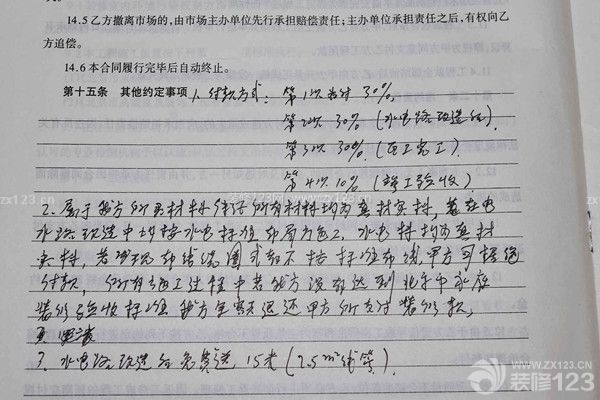 14.5 乙方撤离市场的,由市场主办单位先行承担赔偿责任;主办单位承担责任之后,有权向乙
方追偿。
14.6 本合同履行完毕后自动终止。
第十五条 其他约定事项 1. 付款方式: 第1次 30%,
第2次 30% (水电路改造后).
第3次 30% (瓦工完工).
第4次 10% (竣工验收).
2. 属于我方所用材料保证所有材料均为真材实料,
水路改造中均按水电标准布局为施工, 水电料均为真材
实料, 若发现 不按标准布线, 甲方可拒绝
付款, 所有施工过程中若我方没有达到北京中 家庭
装修验收标准 我方全额退还甲方所支付装修款,
3. 水电路改造 免费送 15米 (2.5m²线等).
www.zx123.cn
装修123